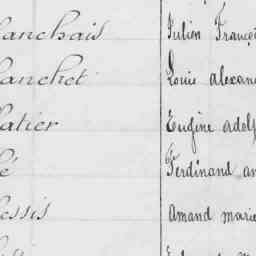 lanchais Julien Franço
lanchet Louis alexan
latier Eugène adol
lé Ferdinand an
lessis amand marie